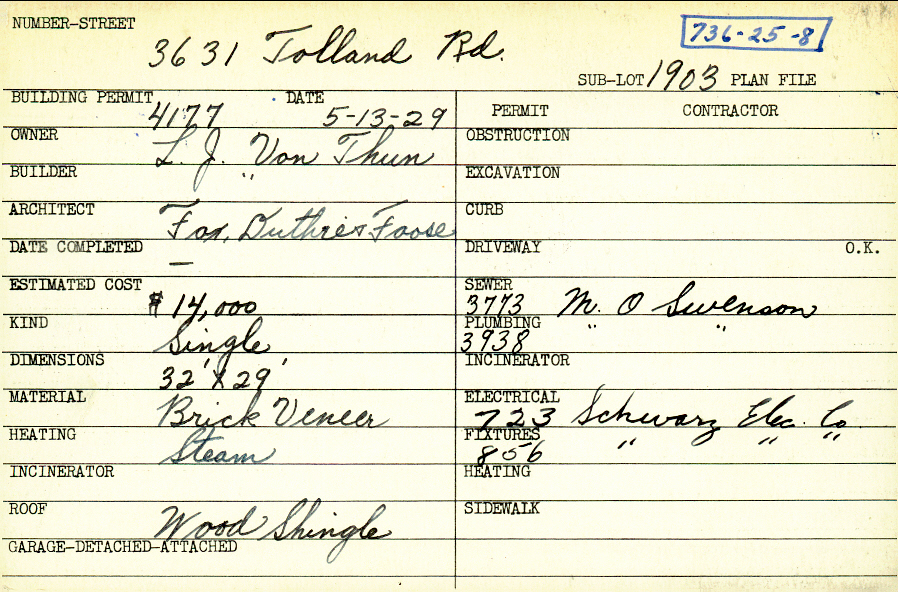 NUMBER-STREET
3631 Tolland Rd.
736-25-8
SUB-LOT 1903 PLAN FILE
BUILDING PERMIT 4177 DATE 5-13-29
OWNER L. J. Von Thun
BUILDER "
ARCHITECT Fox, Duthie & Foose
DATE COMPLETED —
ESTIMATED COST $14,000
KIND Single
DIMENSIONS 32' X 29'
MATERIAL Brick Veneer
HEATING Steam
INCINERATOR
ROOF Wood Shingle
GARAGE-DETACHED-ATTACHED
PERMIT CONTRACTOR
OBSTRUCTION
EXCAVATION
CURB
DRIVEWAY O.K.
SEWER 3773 M. O Swenson
PLUMBING 3938 " "
INCINERATOR
ELECTRICAL 723 Schwarz Elec. Co.
FIXTURES 856 " " "
HEATING
SIDEWALK